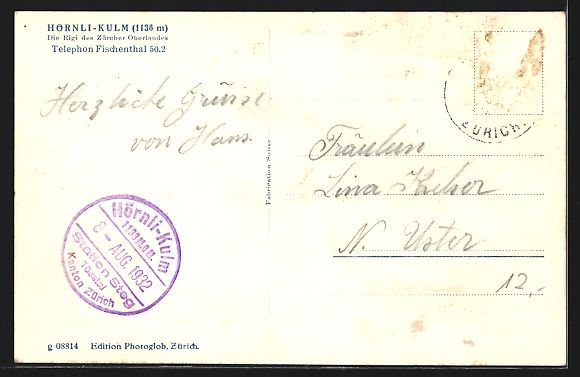 HÖRNLI-KULM (1136 m)
Die Rigi des Zürcher Oberlandes
Telephon Fischenthal 50.2
Herzliche Grüsse
von Hans.
Fabrication Suisse
ZÜRICH
Fräulein
Lina Keller
N. Uster
12,-
Hörnli-Kulm
1133 M.ü.M.
8 – AUG. 1932
Station Steg
Tösstal
Kanton Zürich
g 08814 Edition Photoglob, Zürich.